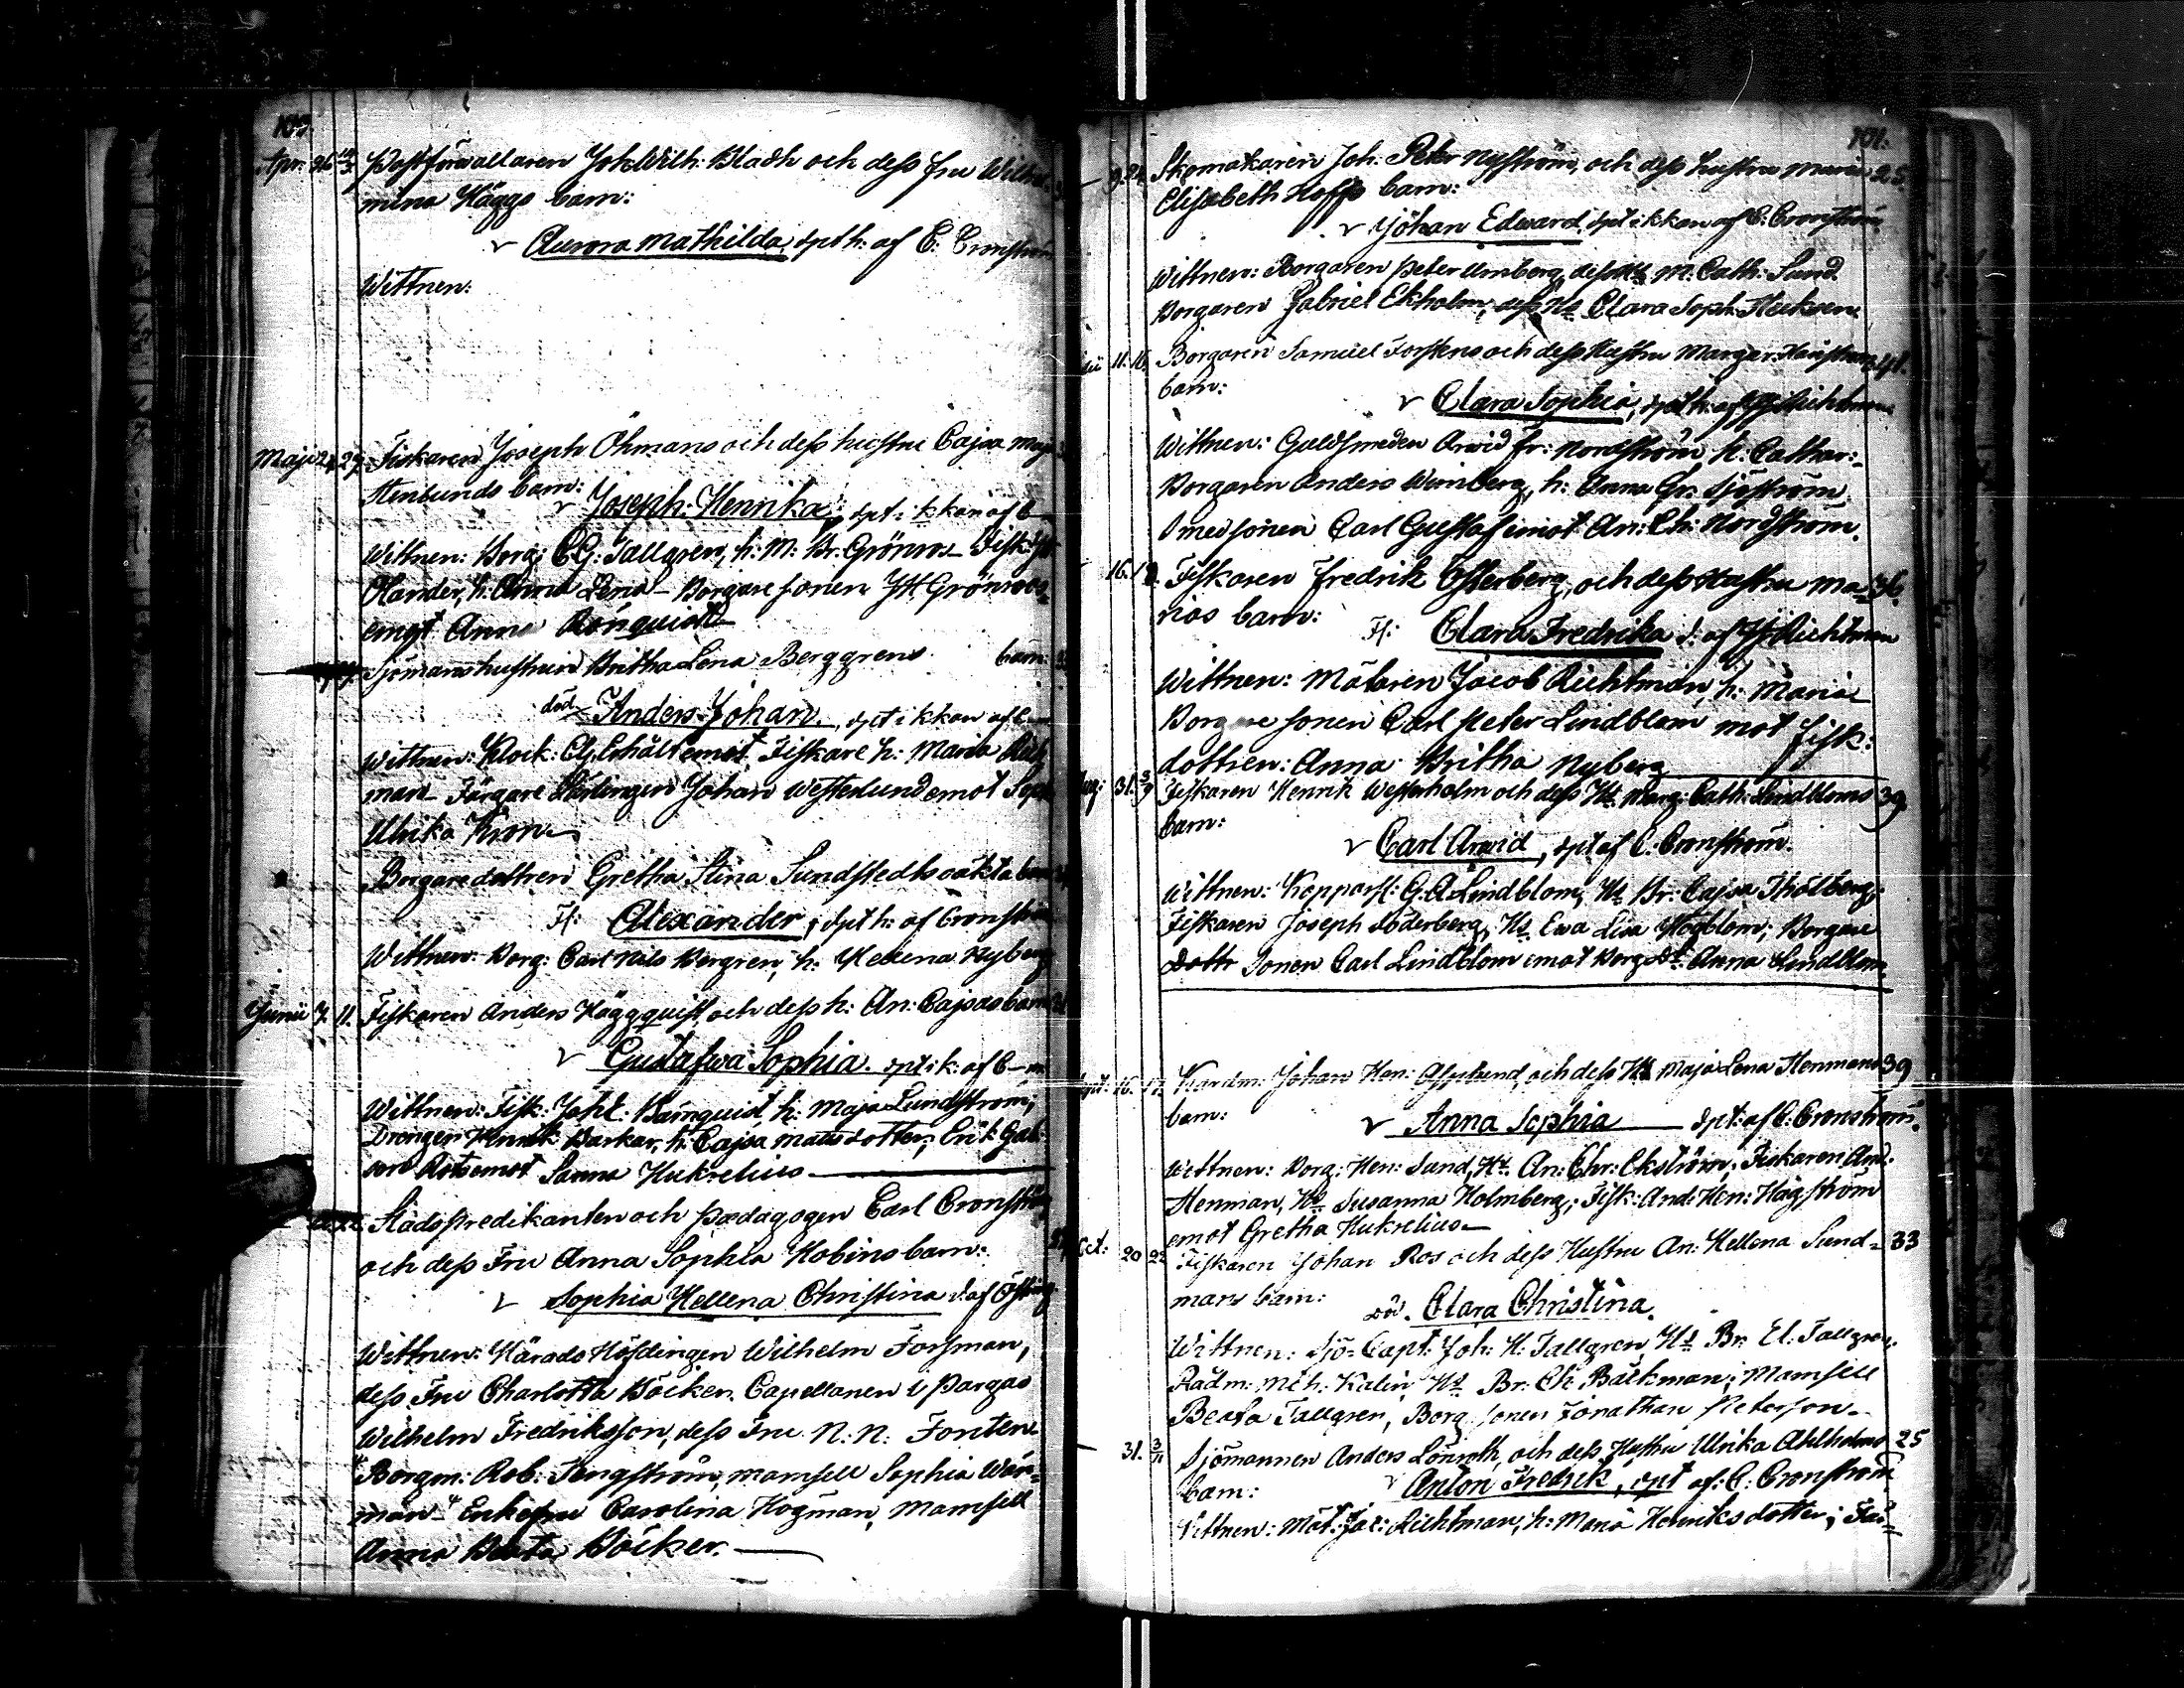 100.
Apr. 26 10/5 Postförvaltaren Joh. Wilh: Bladh och dess fru Wilhel-
mina Häggs barn:
v Aurora Mathilda, dpt h: af C: Cronström
Wittnen:
Maji 24 29 Fiskaren Joseph Öhmans och dess hustru Cajsa Maja
Stenlunds barn:
v Joseph: Henrika, dpt i kkan af C
Wittnen: Borg: C G: Tallgren, h: M: Br: Grönros – Fisk:
Olander, h: Anna Lena – Borgare sonen Grönroos
emot Anna Rönquist
Sjömanshustrun Britha Lena Berggrens barn:
död Anders Johan, dpt i kkan af C
Wittnen: Klock: emot Fiskare h: Maria Rich
man – Färgare Lärlingen Johan Westerlund emot Soph
Ulrika
Borgaredottren Gretha Stina Sundstedts oäkta barn
Fl: Alexander, dpt h: af Cronström
Wittnen: Borg: Carl Nils Bergren, h: Helena Nyberg
Junii 7. 11. Fiskaren Anders Häggquist, och dess h: An: Cajsas barn
v Gustafwa Sophia. dpt i k: af C–m
Wittnen: Fisk: h: Maja Lundström;
Drengen Henrik Barkar, h: Cajsa Matsdotter; Erik Gab:
son Ros emot Sanna Hukrelius
Stadspredikanten och Pædagogen Carl Cronström
och dess Fru Anna Sophia Hobins barn:
v Sophia Hellena Christina d. af
Wittnen: Härads Höfdingen Wilhelm Forsman,
dess Fru Charlotta Böcker. Capellanen i Pargas
Wilhelm Fredriksson, dess Fru N: N: Fonten
Borgm: Rob: Tengström, mamsell Sophia Wär-
man – Enkefru Carolina Hogman, Mamsell
Anna Beata Böcker.
101.
9. 24. Skomakaren Joh: Peter Nyström, och dess hustru Maria 25.
Elisabeth Hoffs barn:
v Johan Edward, dpt i kkan af C: Cronström
Wittnen: Borgaren Peter Umberg, dess Hs M: Cath: Sund
Borgaren Gabriel Ekholm, dess Hs Clara Soph: Heickren
11. 16. Borgaren Samuel Forstens och dess Hustru Margar: 41.
barn:
v Clara Sophia, dpt h: af Richtman
Wittnen: Guldsmeden Arvid Fr: Nordström h: Cathar:
Borgaren Anders Wimberg, h: Anna Gr: Sjöström.
Smedsonen Carl Gustaf emot An: Ch: Nordström.
16. 18. Fiskaren Fredrik Österberg, och dess Hustru Ma- 36.
rias barn:
Fl: Clara Fredrika d: af Richtman
Wittnen: Målaren Jacob Richtman, h: Maria
Borgare sonen Carl Peter Lindblom mot Fisk:
dottren: Anna Britha Nyberg
Aug: 31. 5/9 Fiskaren Henrik Westerholm och dess Hs Marg: Cath: Lindbloms 39.
barn:
v Carl Arvid, dpt af C. Cronström.
Wittnen: Kopparsl: G. A. Lindblom, Hs Br: Cajsa Thölberg;
Fiskaren Joseph Söderberg, Hs Ewa Lisa Högblom; Borgare
dottr sonen Carl Lindblom emot Borg: dt: Anna Lindblom.
Sept: 16. 17. Kardm: Johan Hen: Asplund, och dess Hs Maja Lena Henmans 39
barn:
v Anna Sophia dpt: af C: Cronström.
Wittnen: Borg: Hen: Sund, Hs An: Chr: Ekström; Fiskaren And:
Henman, Hs Susanna Holmberg; Fisk: And: Hen: Hägström
emot Gretha Hukrelius
Oct: 20 22 Fiskaren Johan Ros och dess Hustru An: Hellena Sund- 33
mans barn:
död. Clara Christina.
Wittnen: Sjö-Capt: Joh: H: Tallgren, Hs Br: El: Tallgren;
Rådm: Mich: Kalin, Hs Br: Ch Bäckman; Mamsell
Beata Tallgren, Borg: sonen Jonathan Peterson.
31. 3/11 Sjömannen Anders Lönroth, och dess Hustru Ulrika Ahlholms 25
barn:
v Anton Fredrik, dpt af: C: Cronström
Wittnen: Mål: Jac: Richtman, h: Maria Henriksdotter; Fär-